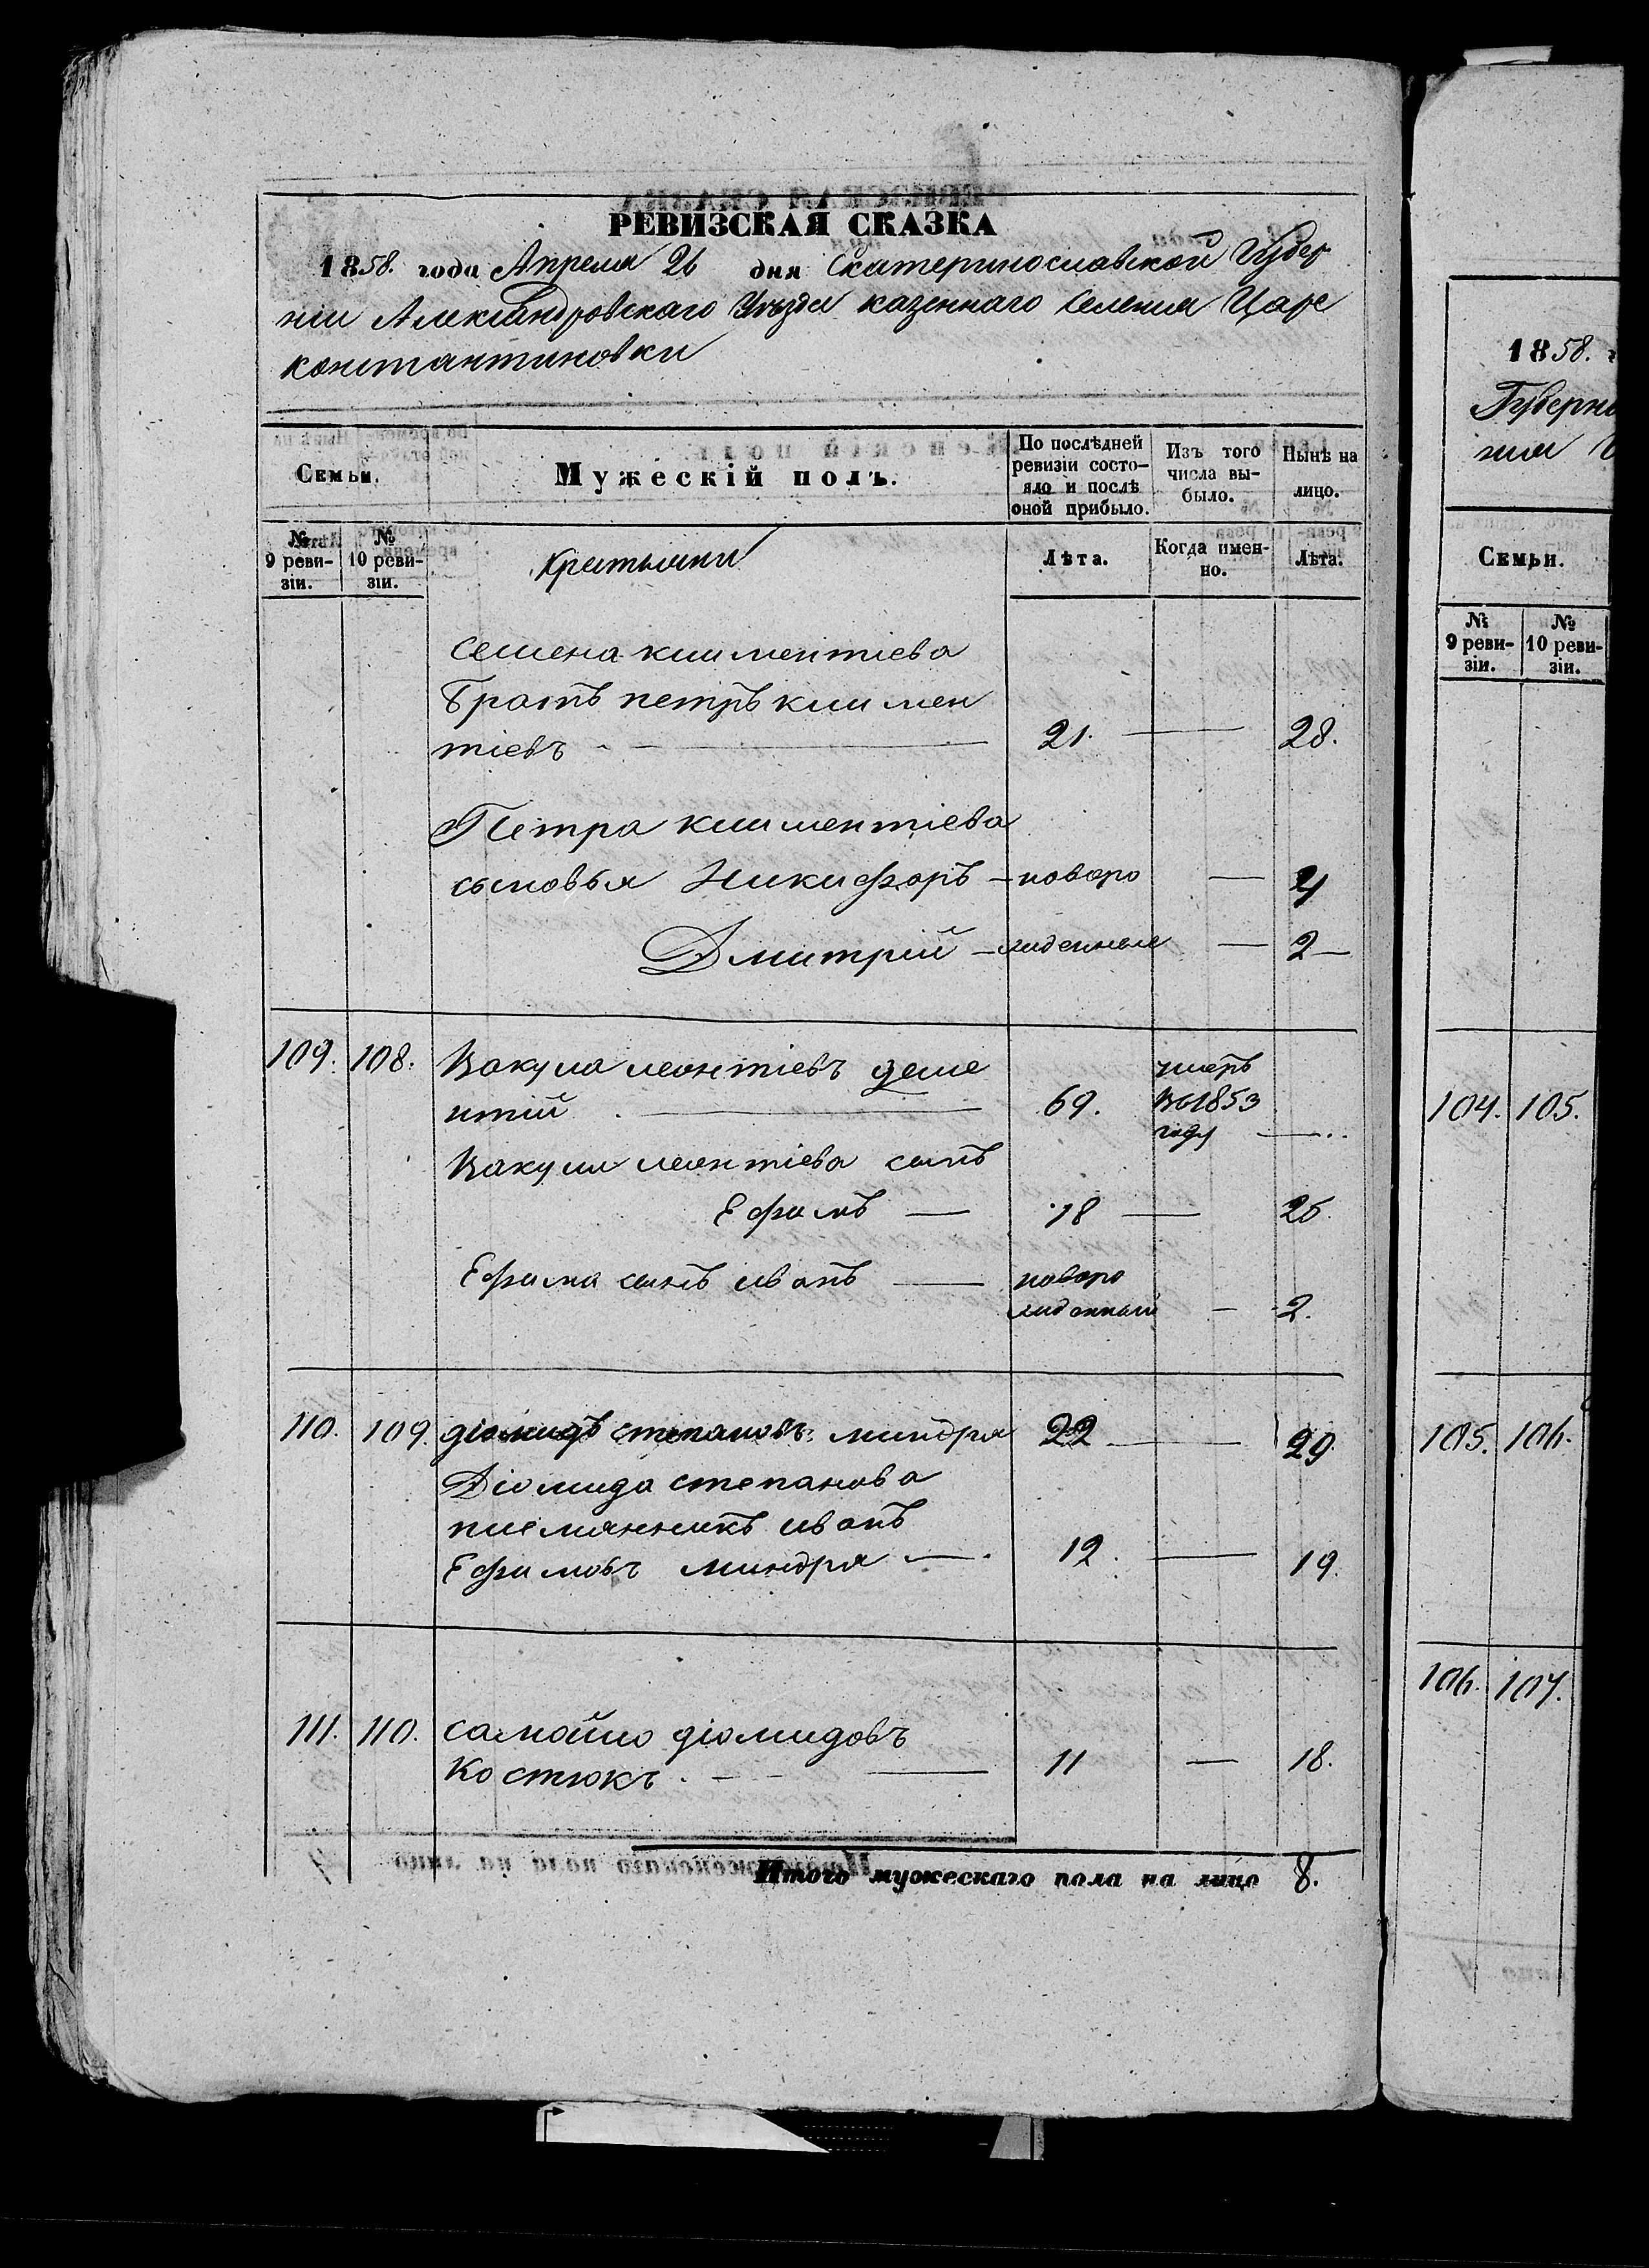 РЕВИЗСКАЯ СКАЗКА
1858. года Апреля 26 дня Екатеринославской Губер
ніи Александровскаго Уѣзда казеннаго селенія Царе
константиновки
Семьи. Мужескій полъ. По послѣдней ревизіи состо-яло и послѣ оной прибыло. Изъ того числа вы-было. Нынѣ на лицо.
№ 9 реви-зіи. № 10 реви-зіи. крестьяни Лѣта. Когда имен-но. Лѣта.
Семена климентіева
братъ петръ климен
тіевъ 21. 28.
Петра климентіева
сыновья Никифоръ новоро 4
Дмитрій жденные 2
109. 108. Вакула леонтіевъ
69. умеръ в 1853 году
Вакулы леонтіева сынъ
Ефимъ 18 25
Ефима сынъ иванъ новоро
жденный 2.
110. 109. діомидъ степановъ миндря 22 29.
Діомида степанова
племянникъ иванъ
Ефимовъ миндря 12. 19.
111. 110. самойло діомидовъ
Костюкъ. 11 18.
Итого мужескаго пола на лицо 8.
1858. г
Губерні
Семьи.
№ 9 реви-зіи. № 10 реви-зіи.
104. 105.
105. 106.
106. 107.